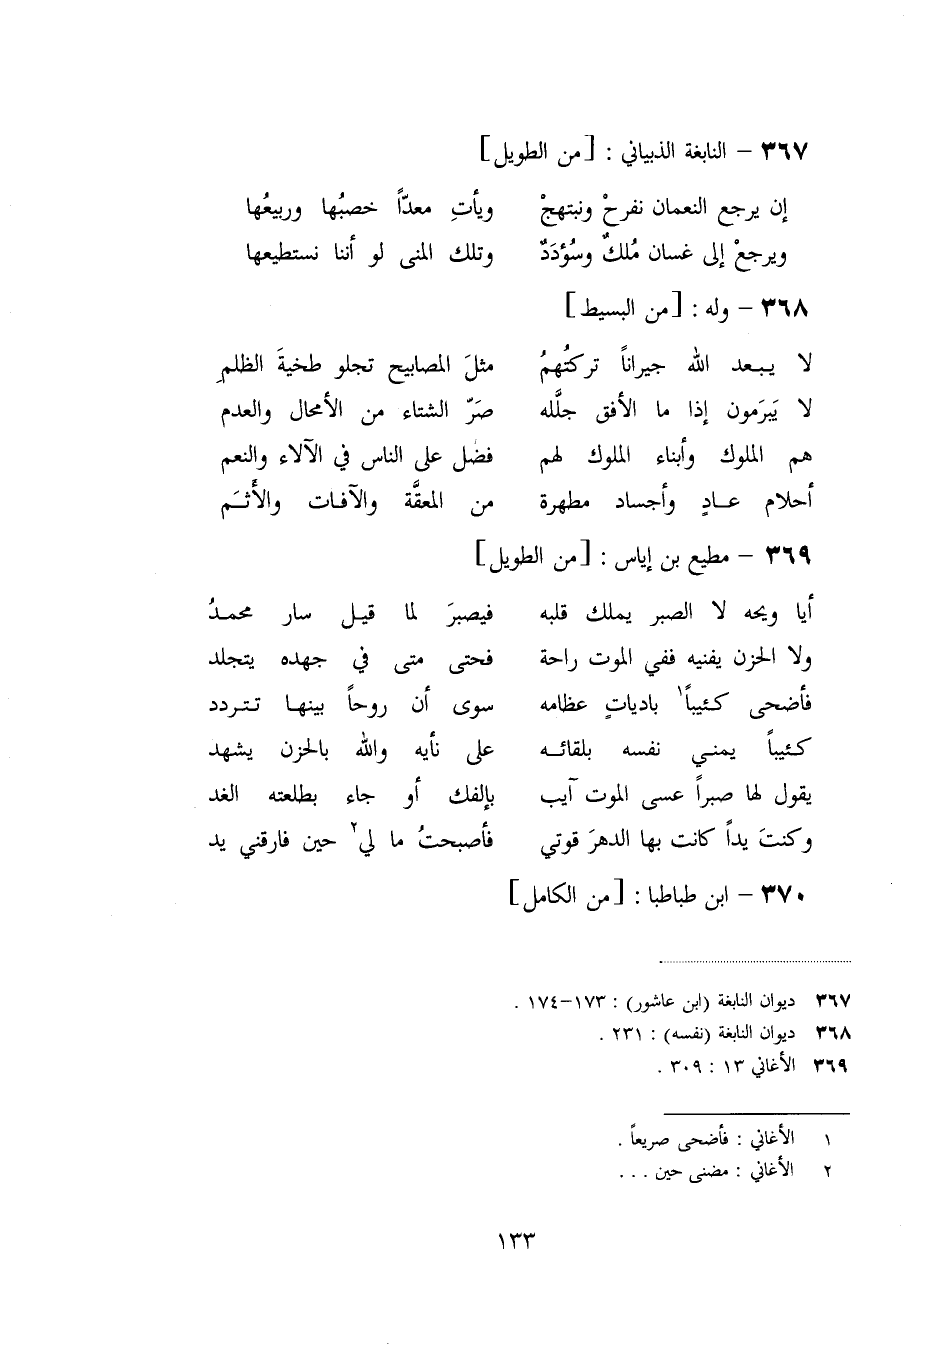 ٣٦٧ – النابغة الذبياني : [من الطويل]
إن يرجع النعمان نفرحْ ونبتهجْ ويأتِ معدّاً خصبُها وربيعُها
ويرجعْ إلى غسان مُلكٌ وسُؤدَدٌ وتلك المنى لو أننا نستطيعها
٣٦٨ – وله : [من البسيط]
لا يبعد الله جيراناً تركتُهمُ مثلَ المصابيح تجلو طخيةَ الظلمِ
لا يَبرَمون إذا ما الأفق جلَّله صَرّ الشتاء من الأمحال والعدم
هم الملوك وأبناء الملوك لهم فضل على الناس في الآلاء والنعم
أحلام عادٍ وأجساد مطهرة من المعقَّة والآفات والأَثَم
٣٦٩ – مطيع بن إياس : [من الطويل]
أيا ويحه لا الصبر يملك قلبه فيصبرَ لما قيل سار محمدُ
ولا الحزن يفنيه ففي الموت راحة فحتى متى في جهده يتجلد
فأضحى كئيباً١ بادياتٍ عظامه سوى أن روحاً بينها تتردد
كئيباً يمني نفسه بلقائه على نأيه والله بالحزن يشهد
يقول لها صبراً عسى الموت آيب بإلفك أو جاء بطلعته الغد
وكنتَ يداً كانت بها الدهرَ قوتي فأصبحتُ ما لي٢ حين فارقني يد
٣٧٠ – ابن طباطبا : [من الكامل]
٣٦٧ ديوان النابغة (ابن عاشور) : ١٧٣–١٧٤ .
٣٦٨ ديوان النابغة (نفسه) : ٢٣١ .
٣٦٩ الأغاني ١٣ : ٣٠٩ .
١ الأغاني : فأضحى صريعاً .
٢ الأغاني : مضنى حين . . .
١٣٣